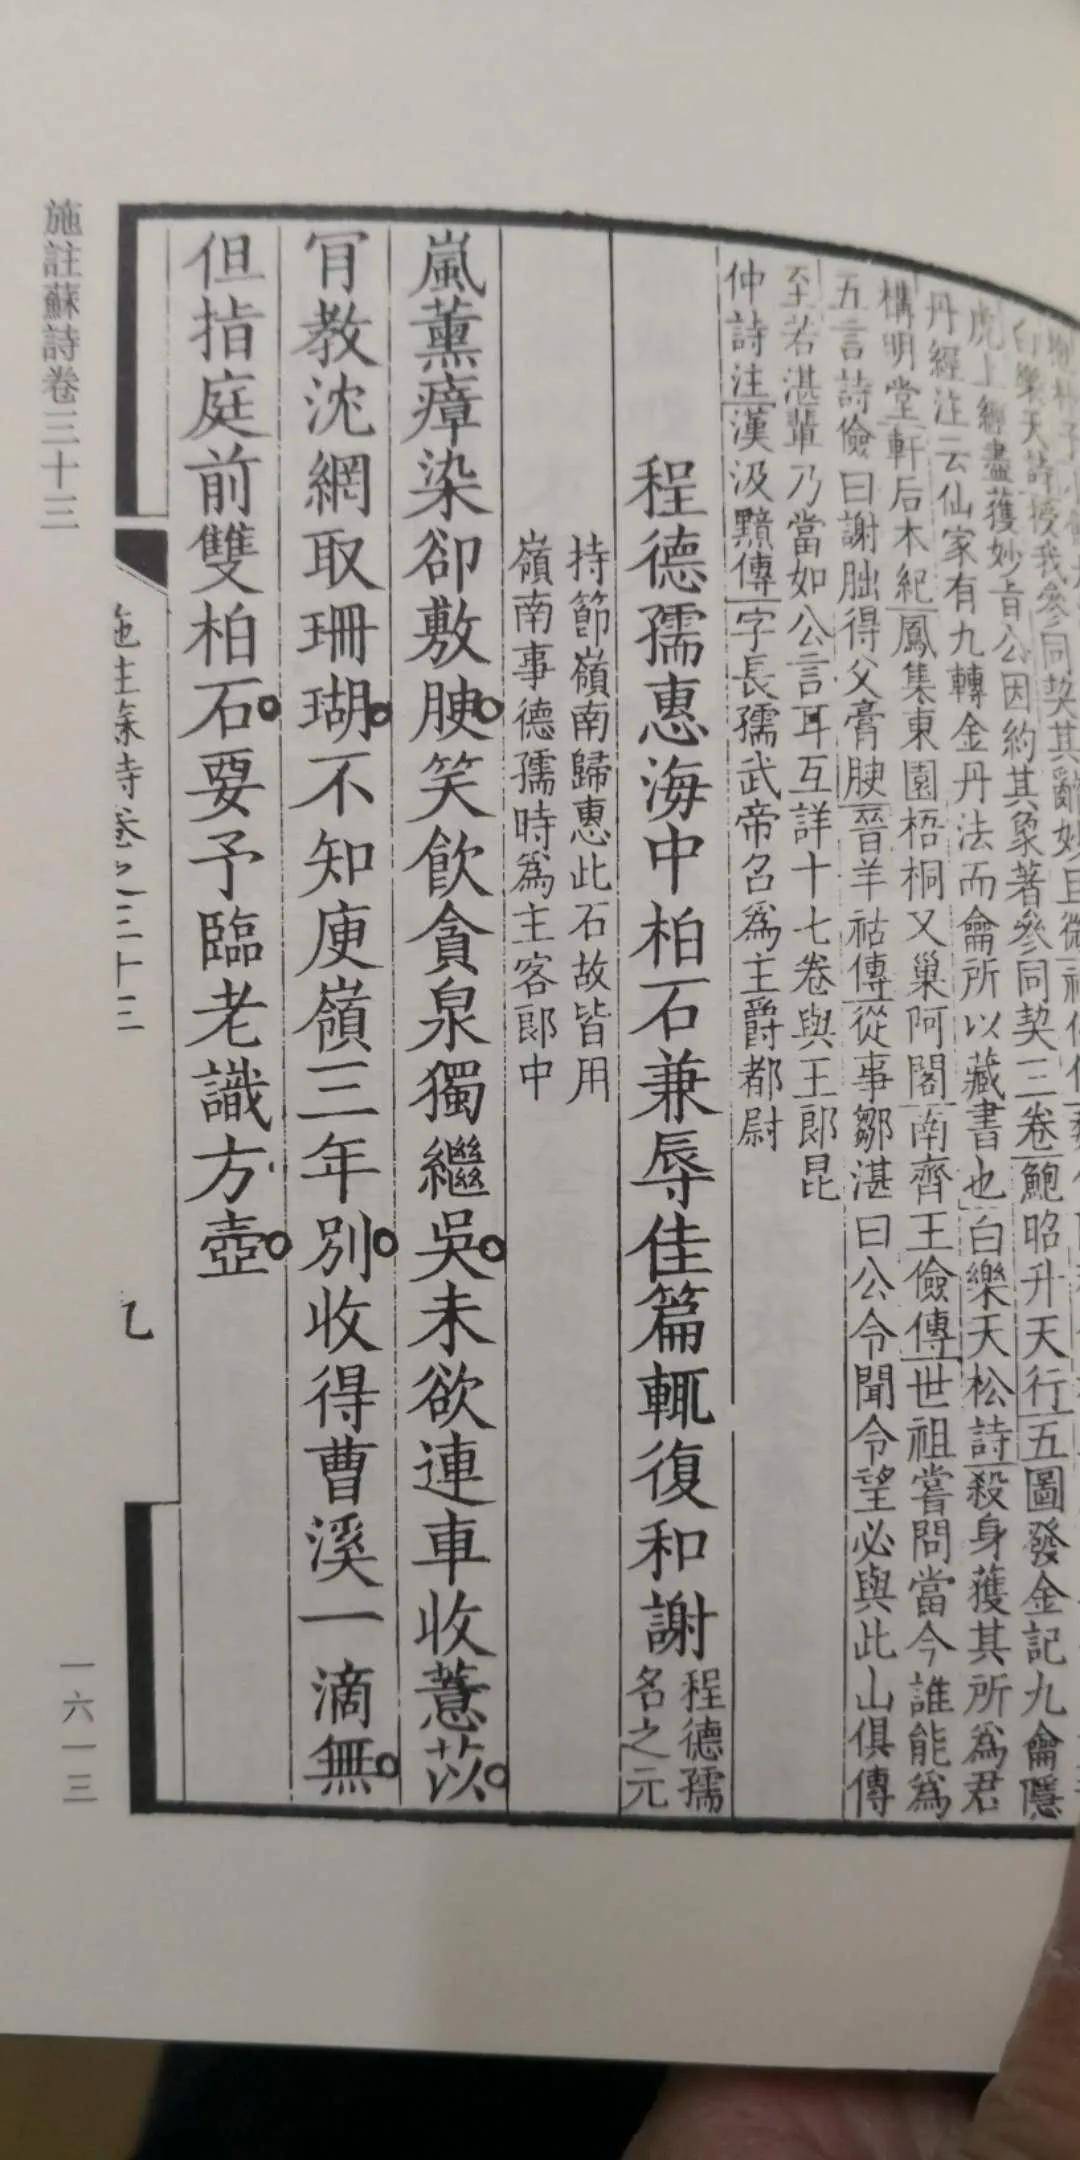 白樂天詩授我參同契其辭妙且微
虎上經盡獲妙旨公因約其象著參同契三卷鮑昭升天行五圖發金記九龠隱
丹經注云仙家有九轉金丹法而龠所以藏書也白樂天松詩殺身獲其所為君
構明堂軒后本紀鳳集東園梧桐又巢阿閣南齊王儉傳世祖嘗問當今誰能為
五言詩儉曰謝朏得父膏腴晉羊祜傳從事鄒湛曰公令聞令望必與此山俱傳
至若湛輩乃當如公言耳互詳十七卷與王郎昆
仲詩注漢汲黯傳字長孺武帝召為主爵都尉
程德孺惠海中柏石兼辱佳篇輒復和謝
程德孺
名之元
持節嶺南歸惠此石故皆用
嶺南事德孺時為主客郎中
嵐薰瘴染卻敷腴笑飲貪泉獨繼吳未欲連車收薏苡
肎教沈網取珊瑚不知庾嶺三年別收得曹溪一滴無
但指庭前雙柏石要予臨老識方壺
施註蘇詩卷之三十三
九
施註蘇詩卷三十三
一六一三